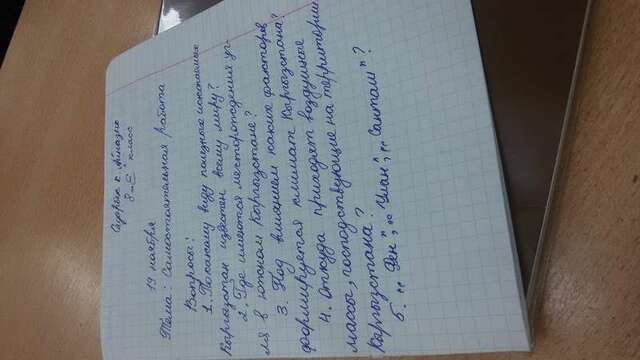 8-
класс
19 ноября
Тема: Самостоятельная работа
Вопросы:
1. По какому виду полезных ископаемых
Кыргызстан известен всему миру?
2. Где имеются месторождения уг-
ля в южном Кыргызстане?
3. Под влиянием каких факторов
формируется климат Кыргызстана?
4. Откуда приходят воздушные
массы, господствующие на территории
Кыргызстана?
5. "Фен", "Улан", "Санташ"?